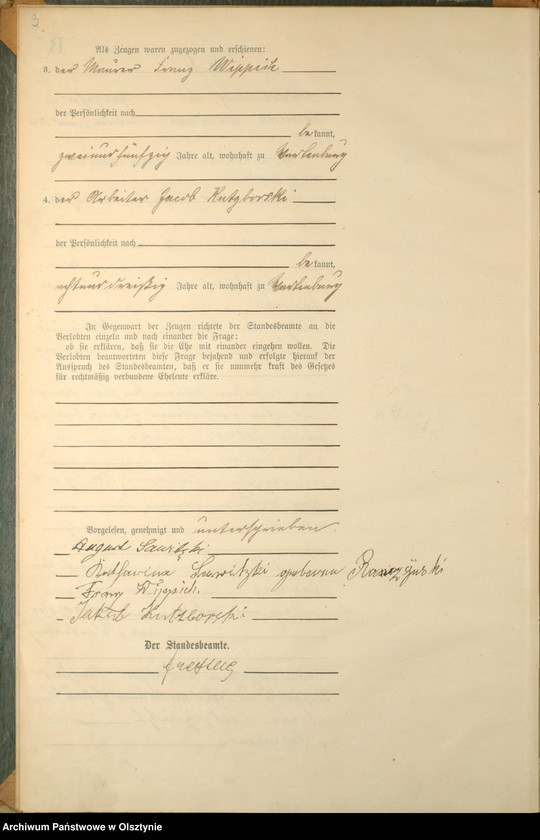 3.
Als Zeugen waren zugezogen und erschienen:
3. der Maurer Franz Wippich
der Persönlichkeit nach
be kannt,
zweiundfünfzig Jahre alt, wohnhaft zu Wartenburg
4. der Arbeiter Jacob Kutzborski
der Persönlichkeit nach
be kannt,
achtunddreißig Jahre alt, wohnhaft zu Wartenburg
In Gegenwart der Zeugen richtete der Standesbeamte an die
Verlobten einzeln und nach einander die Frage:
ob sie erklären, daß sie die Ehe mit einander eingehen wollen. Die
Verlobten beantworteten diese Frage bejahend und erfolgte hierauf der
Ausspruch des Standesbeamten, daß er sie nunmehr kraft des Gesetzes
für rechtmäßig verbundene Eheleute erkläre.
Vorgelesen, genehmigt und unterschrieben.
August Sawitzki
Katharina Sawitzki geborene
Franz Wippich.
Jakob Kutzborski
Der Standesbeamte.
Archiwum Państwowe w Olsztynie